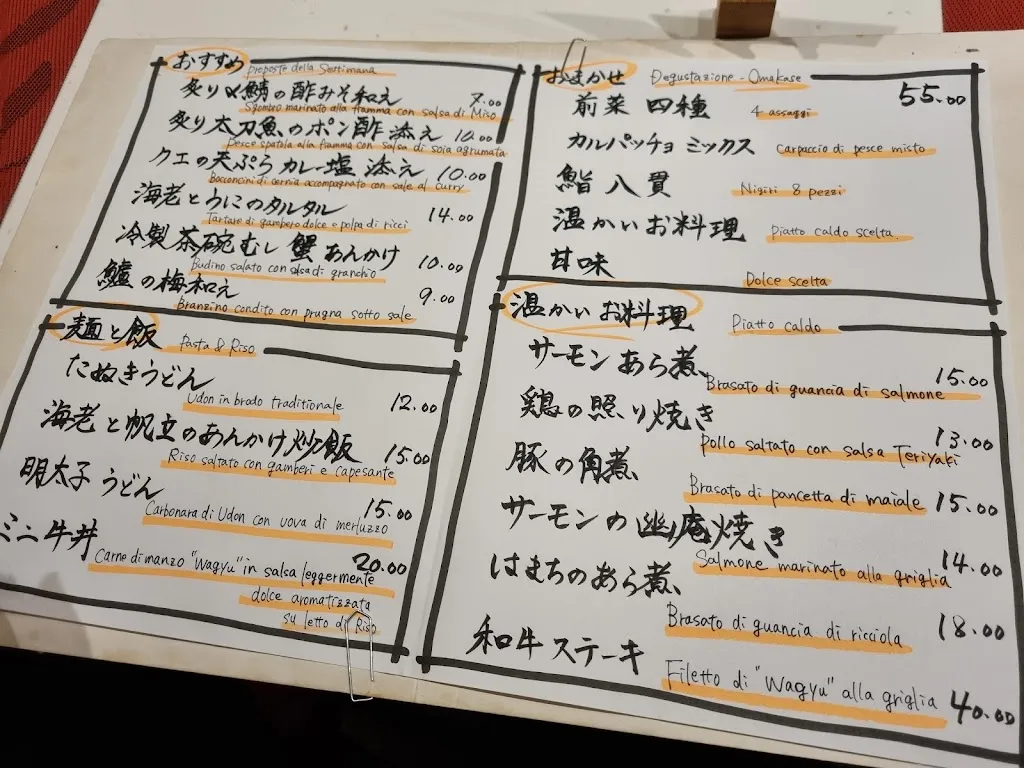 おすすめ proposte della Settimana
炙り〆鯖の酢みそ和え 9.00
Sgombro marinato alla fiamma con salsa di Miso
炙り太刀魚のポン酢添え 10.00
Pesce spatola alla fiamma con salsa di soia agrumata
クエの天ぷら カレー塩添え 10.00
Bocconcini di cernia accompagnato con sale al curry
海老とうにのタルタル 14.00
Tartare di gambero dolce e polpa di ricci
冷製茶碗むし 蟹あんかけ 10.00
Budino salato con salsa di granchio
鱸の梅和え 9.00
Branzino condito con prugna sotto sale
麺と飯 Pasta & Riso
たぬきうどん
Udon in brodo traditionale 12.00
海老と帆立のあんかけ炒飯 15.00
Riso saltato con gamberi e capesante
明太子うどん 15.00
Carbonara di Udon con uova di merluzzo
ミニ牛丼 20.00
Carne di manzo "Wagyu" in salsa leggermente
dolce aromatizzata
su letto di Riso
おまかせ Degustazione - Omakase 55.00
前菜 四種 4 assaggi
カルパッチョ ミックス Carpaccio di pesce misto
鮨 八貫 Nigiri 8 pezzi
温かいお料理 Piatto caldo scelta
甘味 Dolce scelta
温かいお料理 Piatto caldo
サーモンあら煮 15.00
Brasato di guancia di salmone
鶏の照り焼き 13.00
pollo saltato con salsa Teriyaki
豚の角煮
Brasato di pancetta di maiale 15.00
サーモンの幽庵焼き 14.00
Salmone marinato alla griglia
はまちのあら煮 18.00
Brasato di guancia di ricciola
和牛ステーキ
Filetto di "Wagyu" alla griglia 40.00